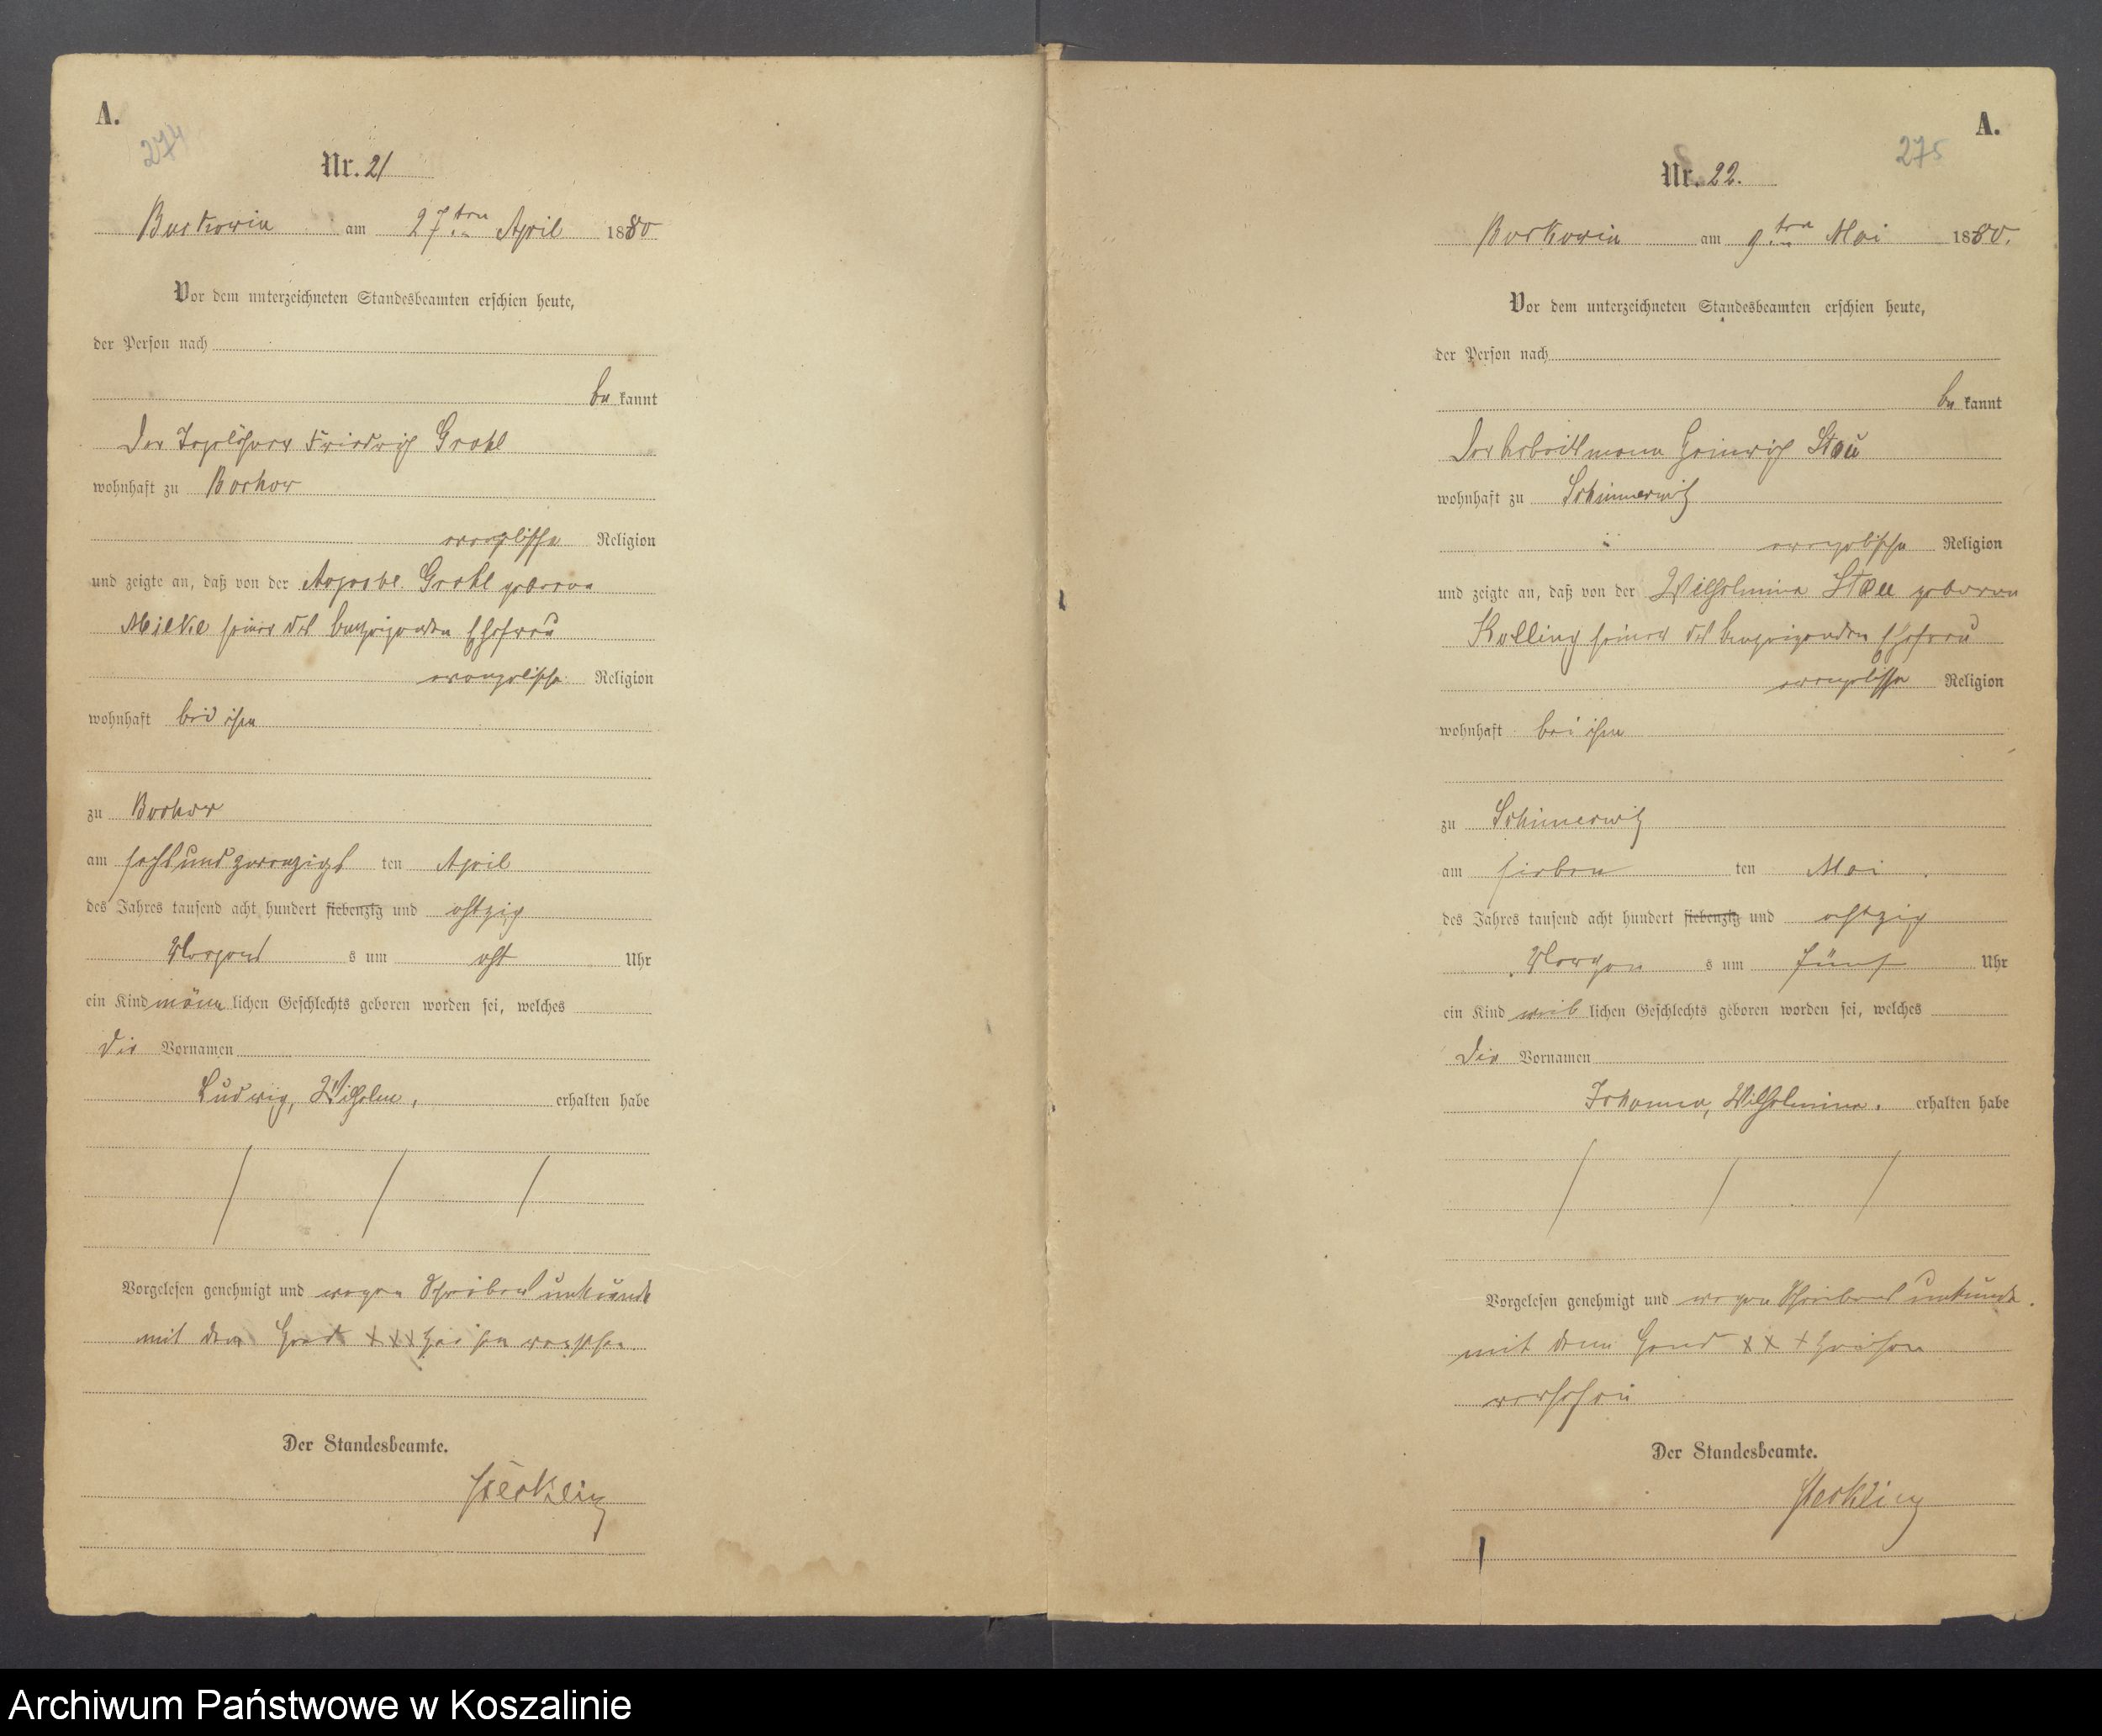 A.
274
Nr. 21
Burkowin am 27ten April 1880
Vor dem unterzeichneten Standesbeamten erschien heute,
der Person nach
be kannt
Der Tagelöhner Friedrich Grohl
wohnhaft zu Borkow
evangelische Religion
und zeigte an, daß von der Grohl geborene
Mielke seiner des bezeigenden Ehefrau
evangelische Religion
wohnhaft bei ihm
zu Borkow
am sechsundzwanzigs ten April
des Jahres tausend acht hundert siebenzig und achtzig
Morgens s um acht Uhr
ein Kind männ lichen Geschlechts geboren worden sei, welches
die Vornamen
Ludwig, Wilhelm, erhalten habe
Vorgelesen genehmigt und wegen Schreibensunkunde
mit dem Hand xxx Zeichen versehen
Der Standesbeamte.
Sterkling
A.
275
Nr. 22.
Burkowin am 9ten Mai 1880.
Vor dem unterzeichneten Standesbeamten erschien heute,
der Person nach
be kannt
Der Arbeitsmann Heinrich Stau
wohnhaft zu Schimmerwitz
evangelische Religion
und zeigte an, daß von der Wilhelmine Stau geboren
Kolling seiner des bezeigenden Ehefrau
evangelische Religion
wohnhaft bei ihm
zu Schimerwitz
am sieben ten Mai
des Jahres tausend acht hundert siebenzig und achtzig
Morgen s um fünf Uhr
ein Kind weib lichen Geschlechts geboren worden sei, welches
die Vornamen
Johanna, Wilhelmine. erhalten habe
Vorgelesen genehmigt und wegen Schreibensunkunde.
mit dem Hand xx x Zeichen
versehen
Der Standesbeamte.
Sterkling
Archiwum Państwowe w Koszalinie